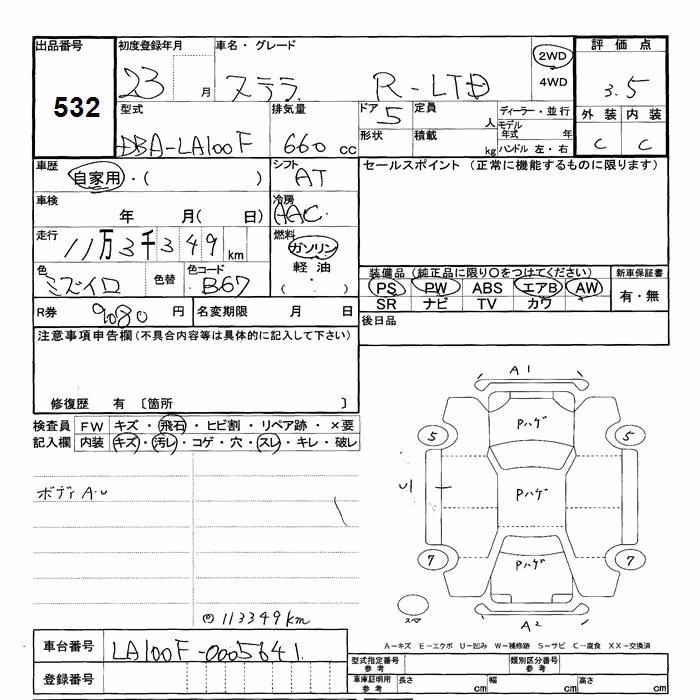 出品番号 初度登録年月 車名・グレード 評価点
532 23 月 ステラ R-LTD 2WD 4WD 3.5
型式 排気量 ドア 5 定員 人 ディーラー・並行 外装 内装
DBA-LA100F 660 cc 形状 積載 kg モデル年式 年 C C
ハンドル 左・右
車歴 自家用・( ) シフト AT セールスポイント (正常に機能するものに限ります)
車検 年 月( 日) 冷房 AAC
走行 11万3千349 km 燃料 ガソリン
軽油
( ・ )
色 ミズイロ 色替 色コード B67
装備品 (純正品に限り○をつけてください) 新車保証書
PS PW ABS エアB AW 有・無
SR ナビ TV カワ
R券 9080 円 名変期限 月 日 後日品
注意事項申告欄(不具合内容等は具体的に記入して下さい)
修復歴 有 〔箇所 〕
検査員 FW キズ・飛石・ヒビ割・リペア跡・×要
記入欄 内装 キズ・汚レ・コゲ・穴・スレ・キレ・破レ
ボディ A・U
◎113349km
A1
Pハゲ
5 5
U1 Pハゲ
7 7
Pハゲ
スペア
A2
A-キズ E-エクボ U-凹み W-補修跡 S-サビ C-腐食 XX-交換済
車台番号 LA100F-0005641
登録番号
型式指定番号 参考 類別区分番号 参考
車庫証明用 参考 長さ cm 幅 cm 高さ cm